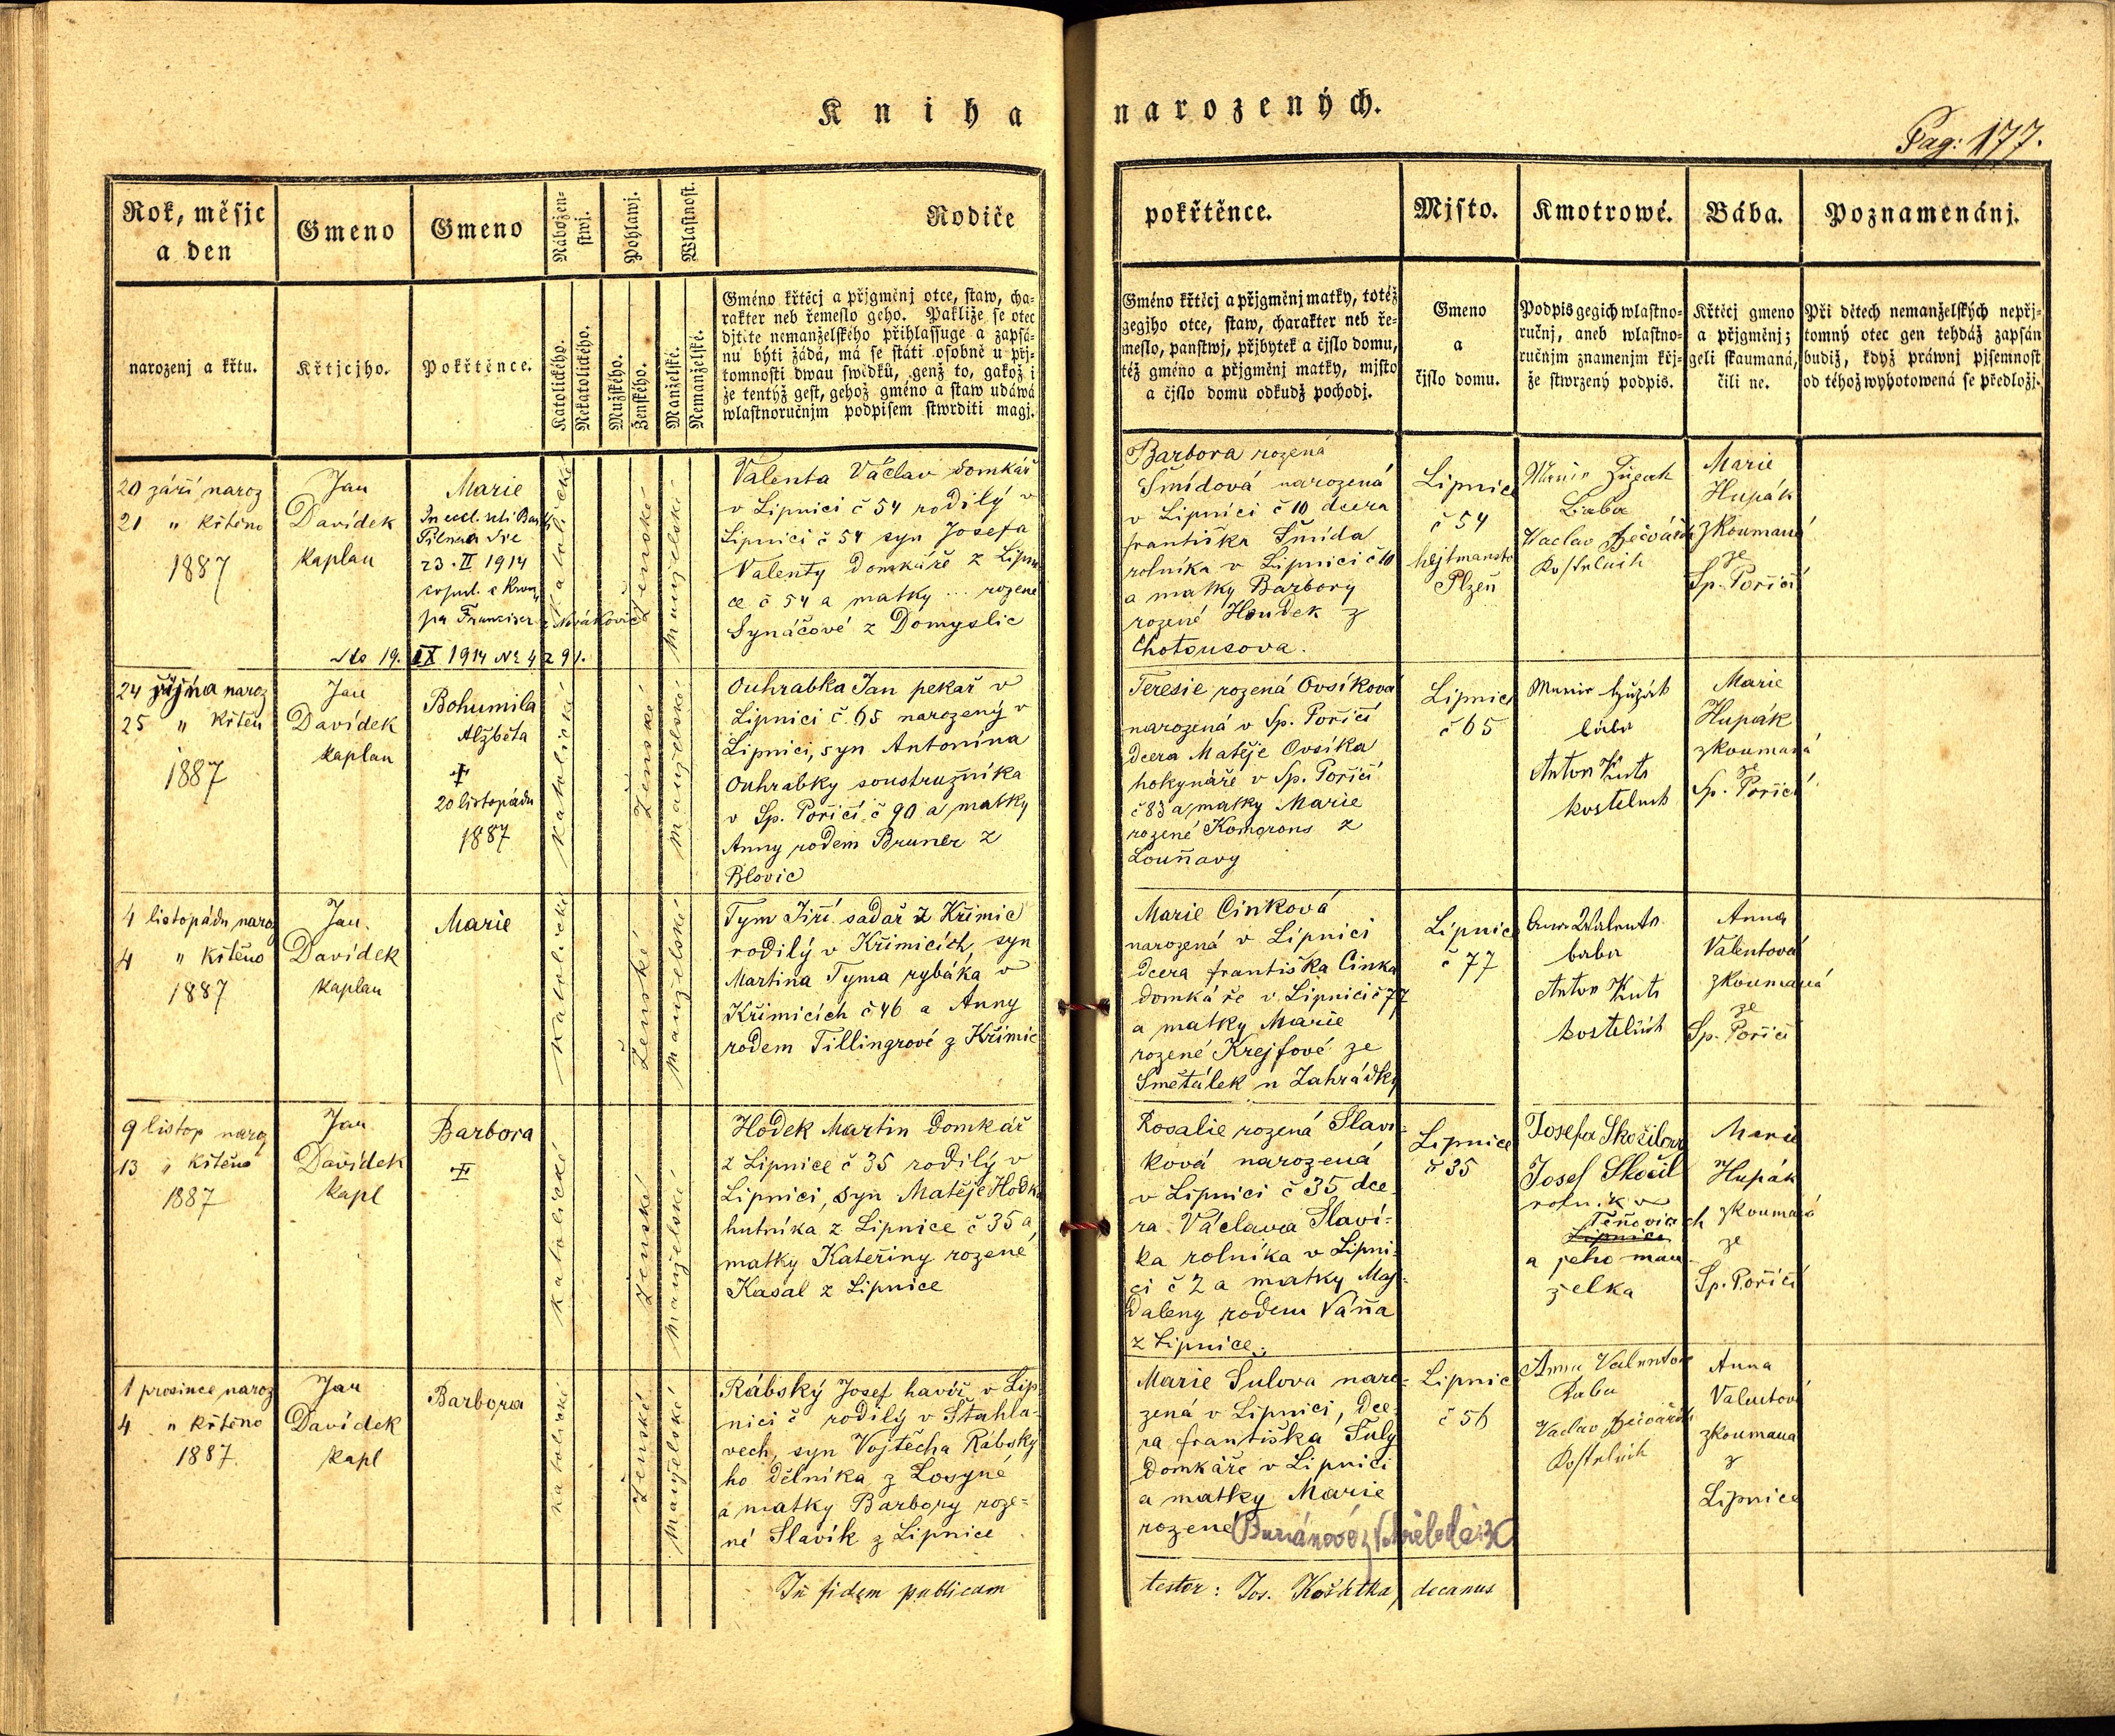 Kniha narozených.
Pag: 177.
Rok, měsjc
a den
Gmeno
Gmeno
Nábožen=
stwj.
Pohlawj.
Wlastnost.
Rodiče
pokřtěnce.
Mjsto.
Kmotrowé.
Bába.
Poznamenánj.
narozenj a křtu.
Křtjcjho.
Pokřtěnce.
Katolického.
Nekatolického.
Mužského.
Ženského.
Manželské.
Nemanželské.
Gméno křtěcj a přjgměnj otce, staw, cha=
rakter neb řemeslo geho. Pakliže se otec
djtěte nemanželského přihlassuge a zapsá=
nu býti žádá, má se státi osobně u přj=
tomnosti dwau swědků, genž to, gakož i
že tentýž gest, gehož gméno a staw udáwá
wlastnoručnjm podpisem stwrditi magj.
Gméno křtěcj a přjgměnj matky, totéž
gegjho otce, staw, charakter neb ře=
meslo, panstwj, přjbytek a čjslo domu,
též gméno a přjgměnj matky, mjsto
a čjslo domu odkudž pochodj.
Gmeno
a
čjslo domu.
Podpis gegich wlastno=
ručnj, aneb wlastno=
ručnjm znamenjm křj=
že stwrzený podpis.
Křtěcj gmeno
a přjgměnj;
geli skaumaná,
čili ne.
Při dětech nemanželských nepřj=
tomný otec gen tehdáž zapsán
budiž, když práwnj pjsemnost
od téhož wyhotowená se předložj.
20 září naroz
21 " křtěno
1887
Jan
Davídek
kaplan
Marie
23. II 1914
19. IX 1914 № 4291.
katolické
ženské
manželské
Valenta Václav domkář
v Lipnici č 54 rodilý v
Lipnici č 54 syn Josefa
Valenty domkáře z Lipni
ce č 54 a matky ... rozené
Synáčové z Domyslic
Barbora rozená
Šmídová narozená
v Lipnici č 10 dcera
františka Šmída
rolníka v Lipnici č 10
a matky Barbory
rozené Houdek z
Chotousova.
Lipnice
č 54
hejtmanstv
Plzeň
Václav
Kostelník
Marie
Hupák
zkoumaná
ze
Sp. Poříčí
24 října naroz
25 " křtěn
1887
Jan
Davídek
kaplan
Bohumila
Alžběta
✝
20 listopadu
1887
katolické
ženské
manželské
Ouhrabka Jan pekař v
Lipnici č. 65 narozený v
Lipnici, syn Antonína
Ouhrabky soustružníka
v Sp. Poříčí č 90 a matky
Anny rodem Bruner z
Blovic
Teresie rozená Ovsíková
narozená v Sp. Poříčí
dcera Matěje Ovsíka
hokynáře v Sp. Poříčí
č 83 a matky Marie
rozené Komorons z
Louňavy
Lipnice
č 65
bába
Anton Kuts
kostelník
Marie
Hupák
zkoumaná
ze
Sp. Poříčí
4 listopadu naroz
4 " křtěno
1887
Jan
Davídek
kaplan
Marie
katolické
ženské
manželské
Tym Jiří sadař z Křimic
rodilý v Křimicích, syn
Martina Tyma rybáka v
Křimicích č 46 a Anny
rodem Tillingrové z Křimic
Marie Cinková
narozená v Lipnici
dcera františka Cinka
domkáře v Lipnici č 77
a matky Marie
rozené Krejfové ze
Smetálek n Zahrádky
Lipnice
č 77
baba
Anton Kuts
kostelník
Anna
Valentová
zkoumaná
ze
Sp. Poříčí
9 listop naroz
13 " křtěno
1887
Jan
Davídek
kapl
Barbora
✝
katolické
ženské
manželské
Hodek Martin domkář
z Lipnice č 35 rodilý v
Lipnici, syn Matěje Hodka
hutníka z Lipnice č 35 a
matky Kateřiny rozené
Kasal z Lipnice
Rosalie rozená Slaví=
ková narozená
v Lipnici č 35 dce
ra Václava Slaví=
ka rolníka v Lipni
ci č 2 a matky Mag=
daleny rodem Váňa
z Lipnice.
Lipnice
č 35
Josefa Skočilova
Josef Skočil
rolník v
Těňovicích
Lipnici
a jeho man
želka
Marie
Hupák
zkoumaná
ze
Sp. Poříčí
1 prosince naroz
4 " křtěno
1887.
Jan
Davídek
kapl
Barbora
katolické
ženské
manželské
Rábský Josef havíř v Lip=
nici č rodilý v Šťahla=
vech, syn Vojtěcha Rábský
ho dělníka z Losyné
a matky Barbory roze=
né Slavík z Lipnice
Marie Šulova naro=
zená v Lipnici, dce=
ra františka Šuly
domkáře v Lipnici
a matky Marie
rozené Buriánové z
Lipnice
č 56
Anna Valentova
Baba
Václav
Kostelník
Anna
Valentová
zkoumaná
z
Lipnice
In fidem publicam
testor: Jos. Košátka, decanus